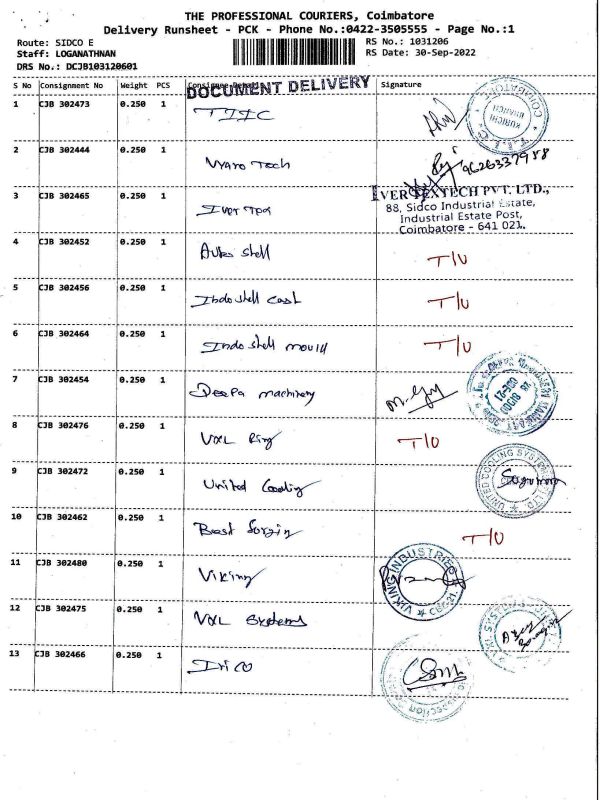 THE PROFESSIONAL COURIERS, Coimbatore
Delivery Runsheet - PCK - Phone No.:0422-3505555 - Page No.:1
Route: SIDCO E
RS No.: 1031206
Staff: LOGANATHNAN
RS Date: 30-Sep-2022
DRS No.: DCJB103120601
S No Consignment No Weight PCS Consignee Details Signature
DOCUMENT DELIVERY
1 CJB 302473 0.250 1 TIIC
COIMBATORE
KURICHI BRANCH
T.I.I.C
2 CJB 302444 0.250 1 Vyaro Tech 9626337988
3 CJB 302465 0.250 1 Iver Tex
IVER TEXTECH PVT. LTD.,
88, Sidco Industrial Estate,
Industrial Estate Post,
Coimbatore - 641 021.
4 CJB 302452 0.250 1 Auto shell T/U
5 CJB 302456 0.250 1 Indo shell cast T/U
6 CJB 302464 0.250 1 Indo shell mould T/U
7 CJB 302454 0.250 1 Deepa machinery
8 CJB 302476 0.250 1 VXL Ring T/U
9 CJB 302472 0.250 1 United Cooling
UNITED COOLING SYSTEMS (P) LTD.
10 CJB 302462 0.250 1 Best forgin T/U
11 CJB 302480 0.250 1 Viking
VIKING INDUSTRIES
CBE-21.
12 CJB 302475 0.250 1 VXL Systems
VXL SYSTEMS
13 CJB 302466 0.250 1 Irico